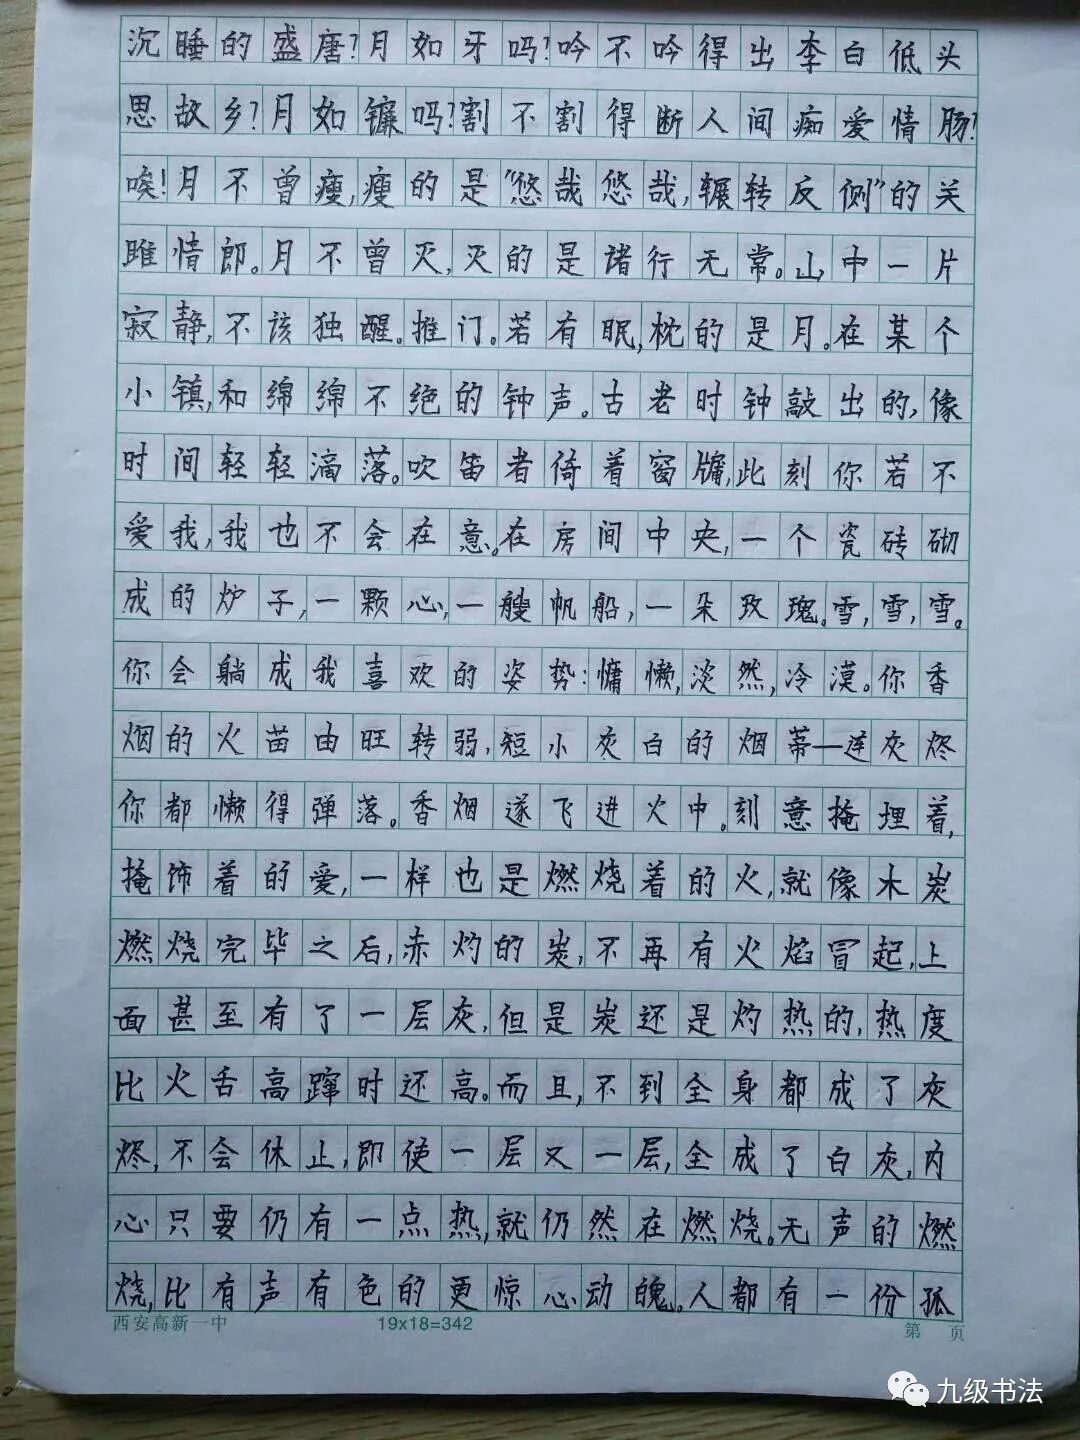 沉睡的盛唐?月如牙吗?吟不吟得出李白低头
思故乡?月如镰吗?割不割得断人间痴爱情肠?
唉!月不曾瘦,瘦的是“悠哉悠哉,辗转反侧”的关
雎情郎。月不曾灭,灭的是诸行无常。山中一片
寂静,不该独醒。推门。若有眠,枕的是月。在某个
小镇,和绵绵不绝的钟声。古老时钟敲出的,像
时间轻轻滴落。吹笛者倚着窗牖,此刻你若不
爱我,我也不会在意。在房间中央,一个瓷砖砌
成的炉子,一颗心,一艘帆船,一朵玫瑰。雪,雪,雪。
你会躺成我喜欢的姿势:慵懒,淡然,冷漠。你香
烟的火苗由旺转弱,短小灰白的烟蒂—连灰烬
你都懒得弹落。香烟遂飞进火中。刻意掩埋着,
掩饰着的爱,一样也是燃烧着的火,就像木炭
燃烧完毕之后,赤灼的炭,不再有火焰冒起,上
面甚至有了一层灰,但是炭还是灼热的,热度
比火舌高蹿时还高。而且,不到全身都成了灰
烬,不会休止,即使一层又一层,全成了白灰,内
心只要仍有一点热,就仍然在燃烧。无声的燃
烧,比有声有色的更惊心动魄。人都有一份孤
西安高新一中 19x18=342 第 页
九级书法